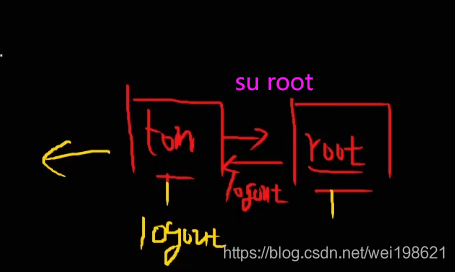 su root
tom
root
logout
logout
https://blog.csdn.net/wei198621